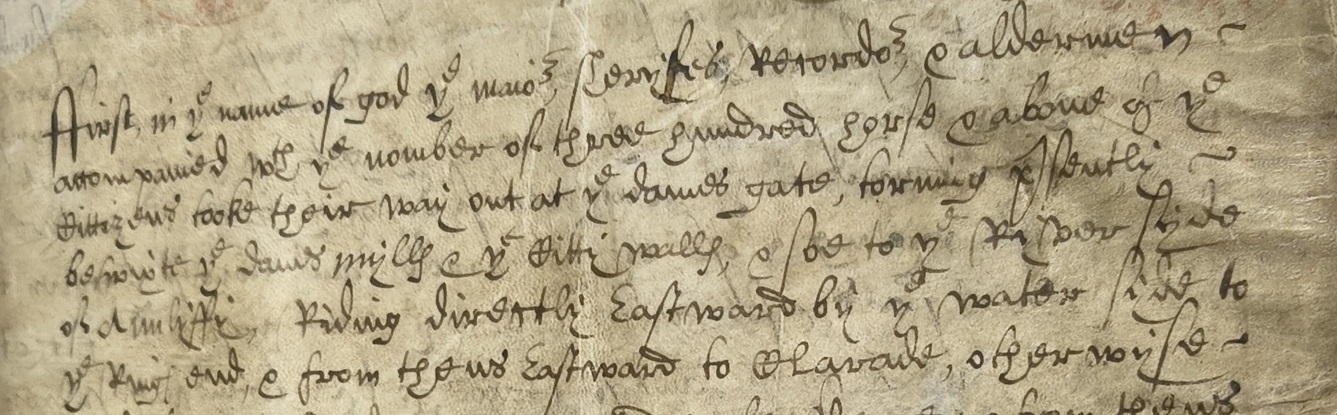 ffirst, in ye name of god ye maior, Sheryfes, Recordor, & aldermen
accompanied wth ye nomber of three hundred horse & above of ye
Cittizens tooke their way out at ye dames gate, torning psently
betwixte ye dames mylls & ye Citti walls, & soe to ye River syde
of Anlyffy, Riding directly Eastward by ye water side to
ye Rings end, & from thens Eastward to Clarade, otherwyse
from thens